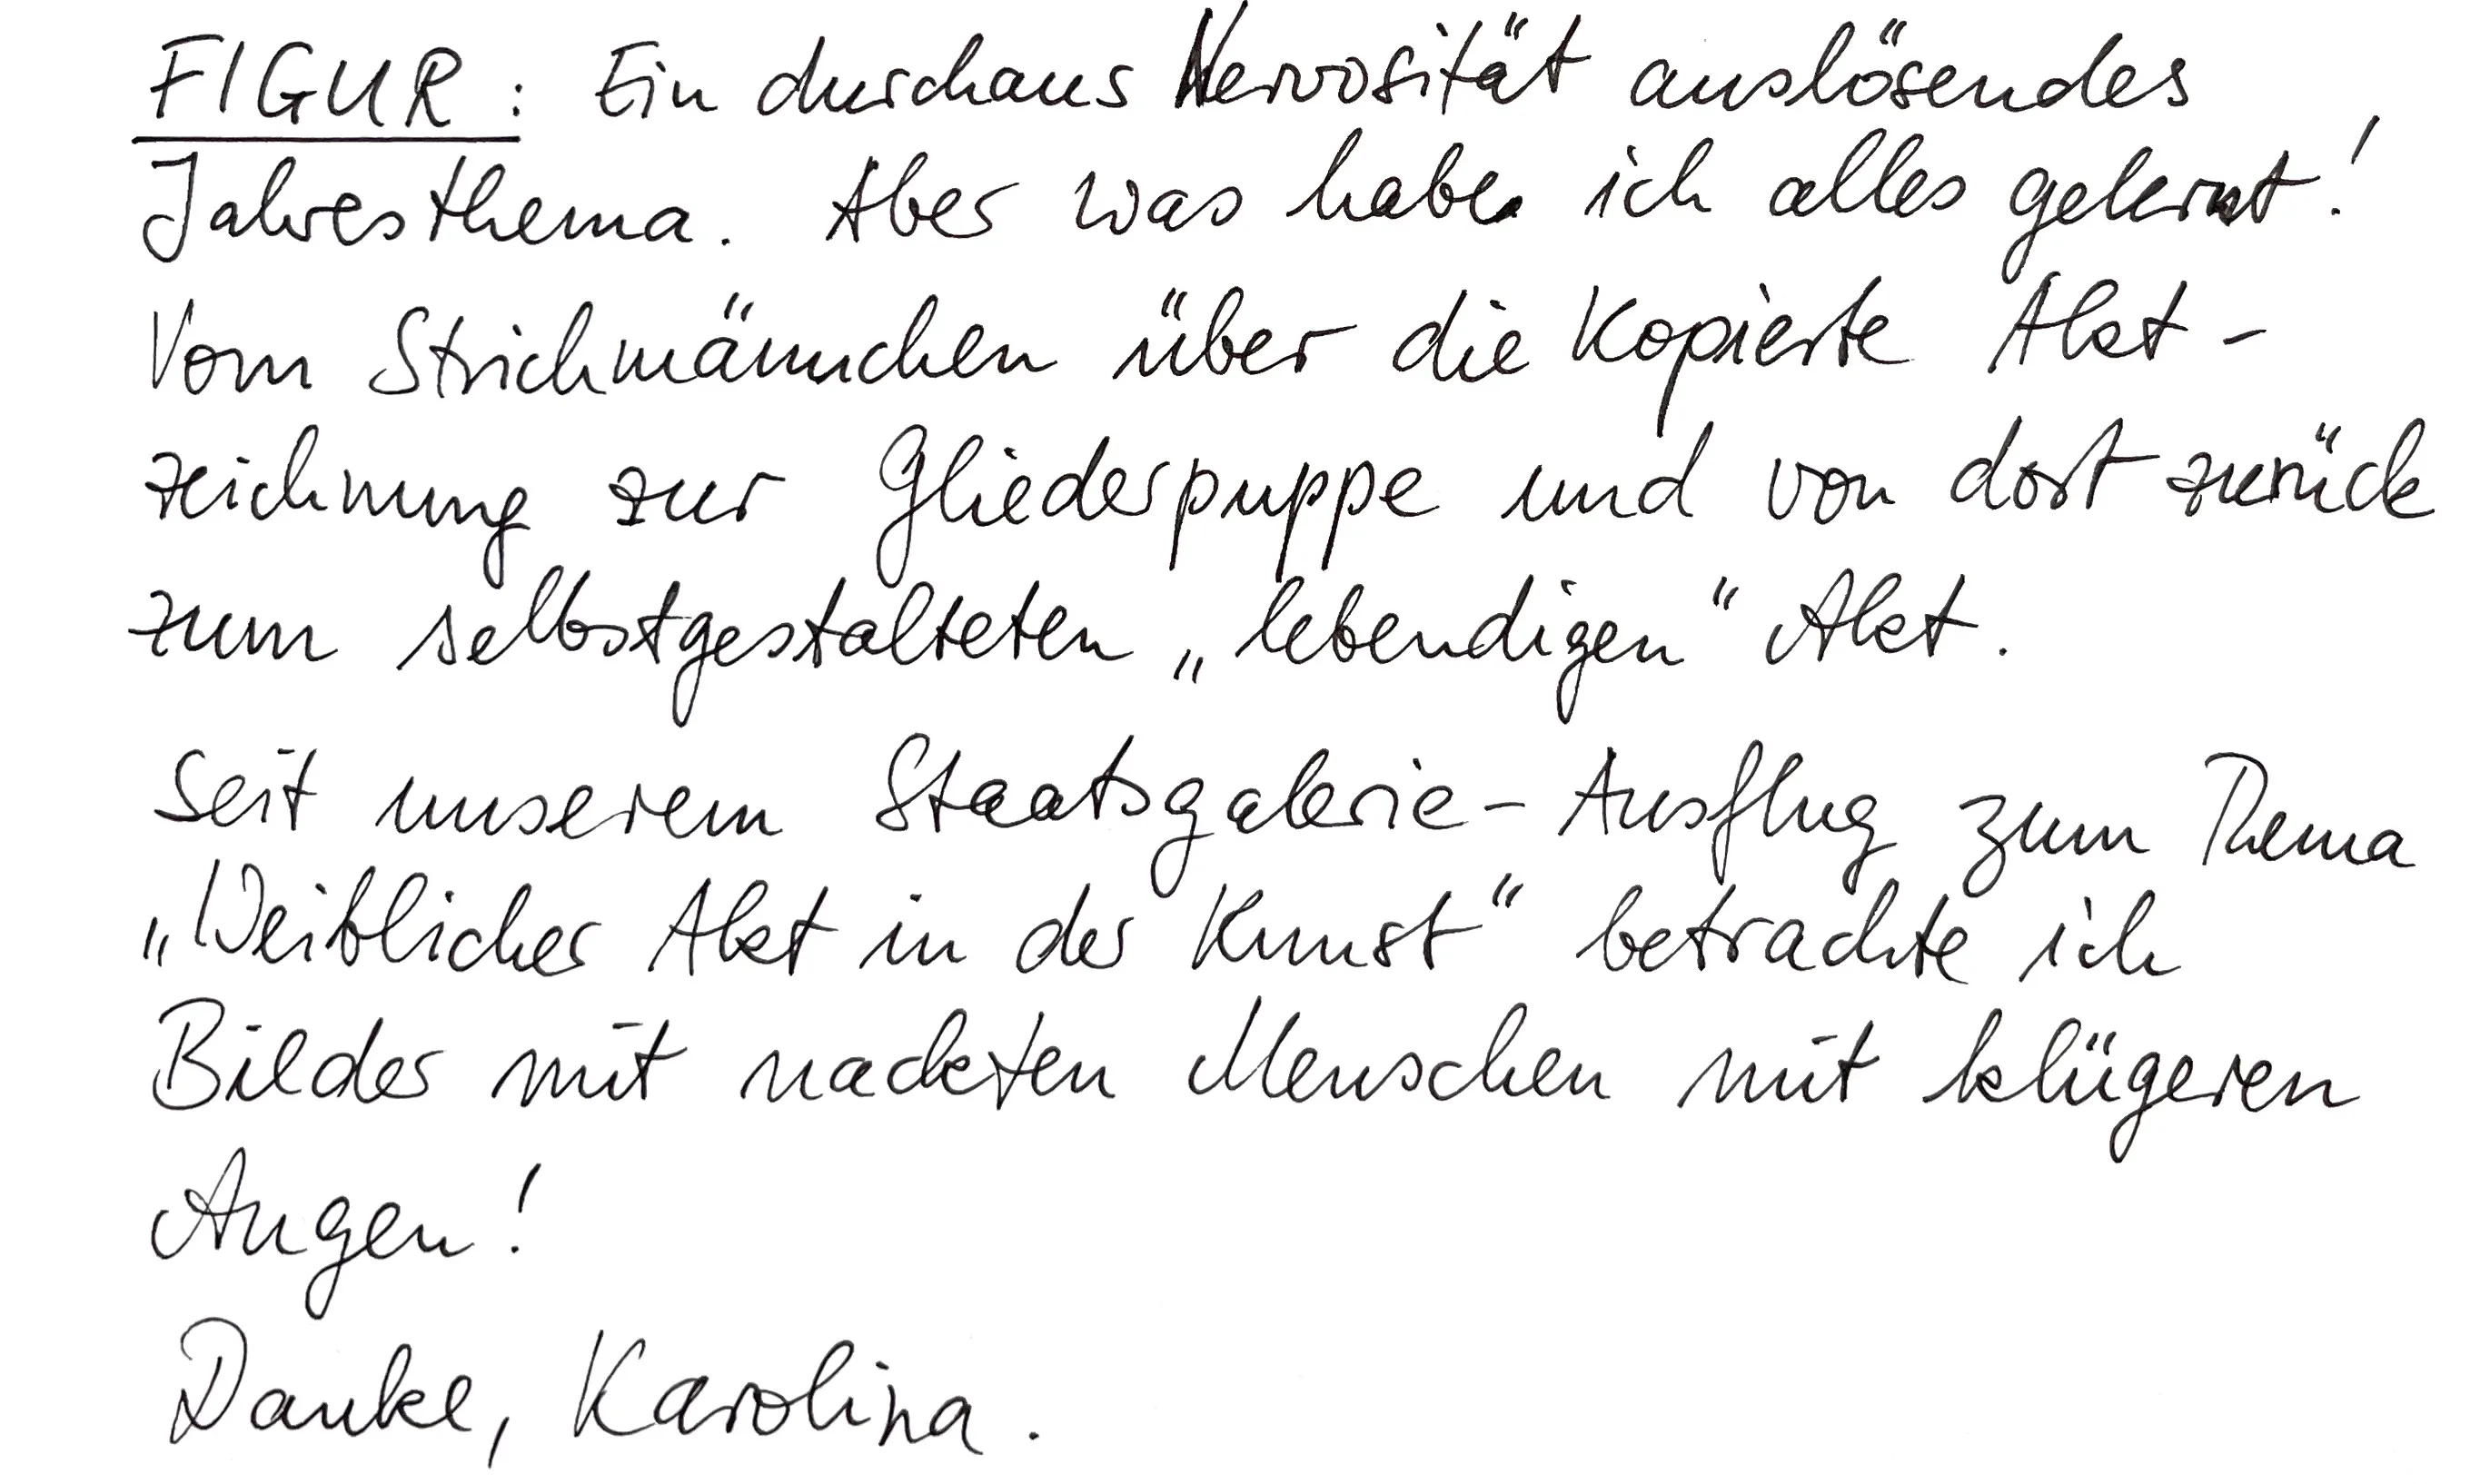 FIGUR: Ein durchaus Nervosität auslösendes
Jahresthema. Aber was habe ich alles gelernt!
Vom Strichmännchen über die kopierte Akt-
zeichnung zur Gliederpuppe und von dort zurück
zum selbstgestalteten „lebendigen“ Akt.
Seit unserem Staatsgalerie-Ausflug zum Thema
„Weiblicher Akt in der Kunst“ betrachte ich
Bilder mit nackten Menschen mit klügeren
Augen!
Danke, Karolina.